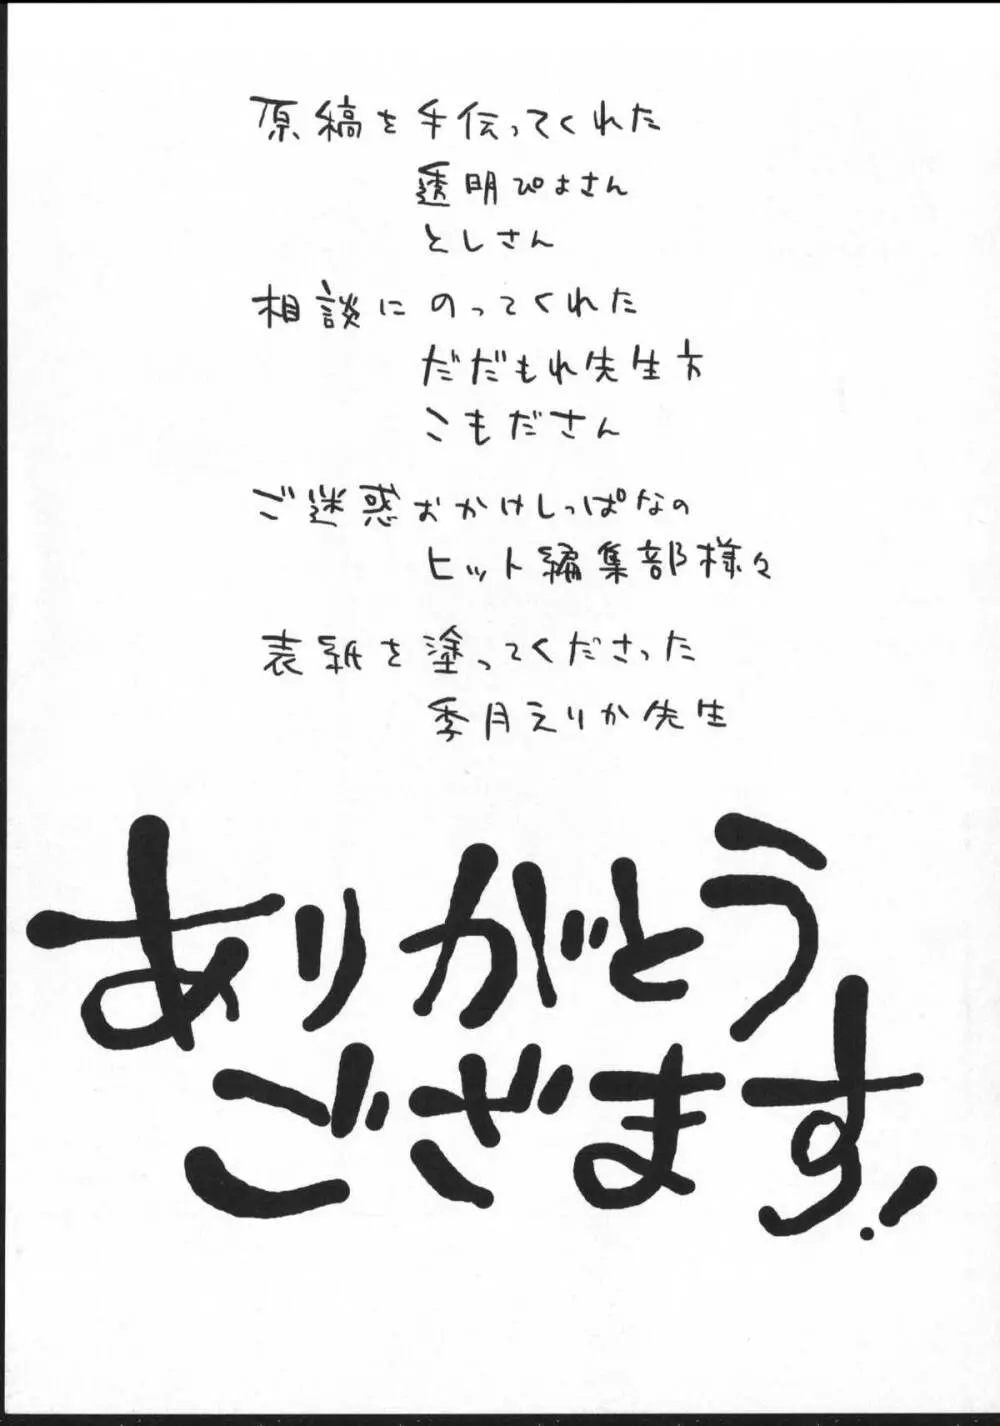 原稿を手伝ってくれた
透明ぴよさん
としさん
相談にのってくれた
だだもれ先生方
こもださん
ご迷惑おかけしっぱなの
ヒット編集部様々
表紙を塗ってくださった
季月えりか先生
ありがとう
ござます!